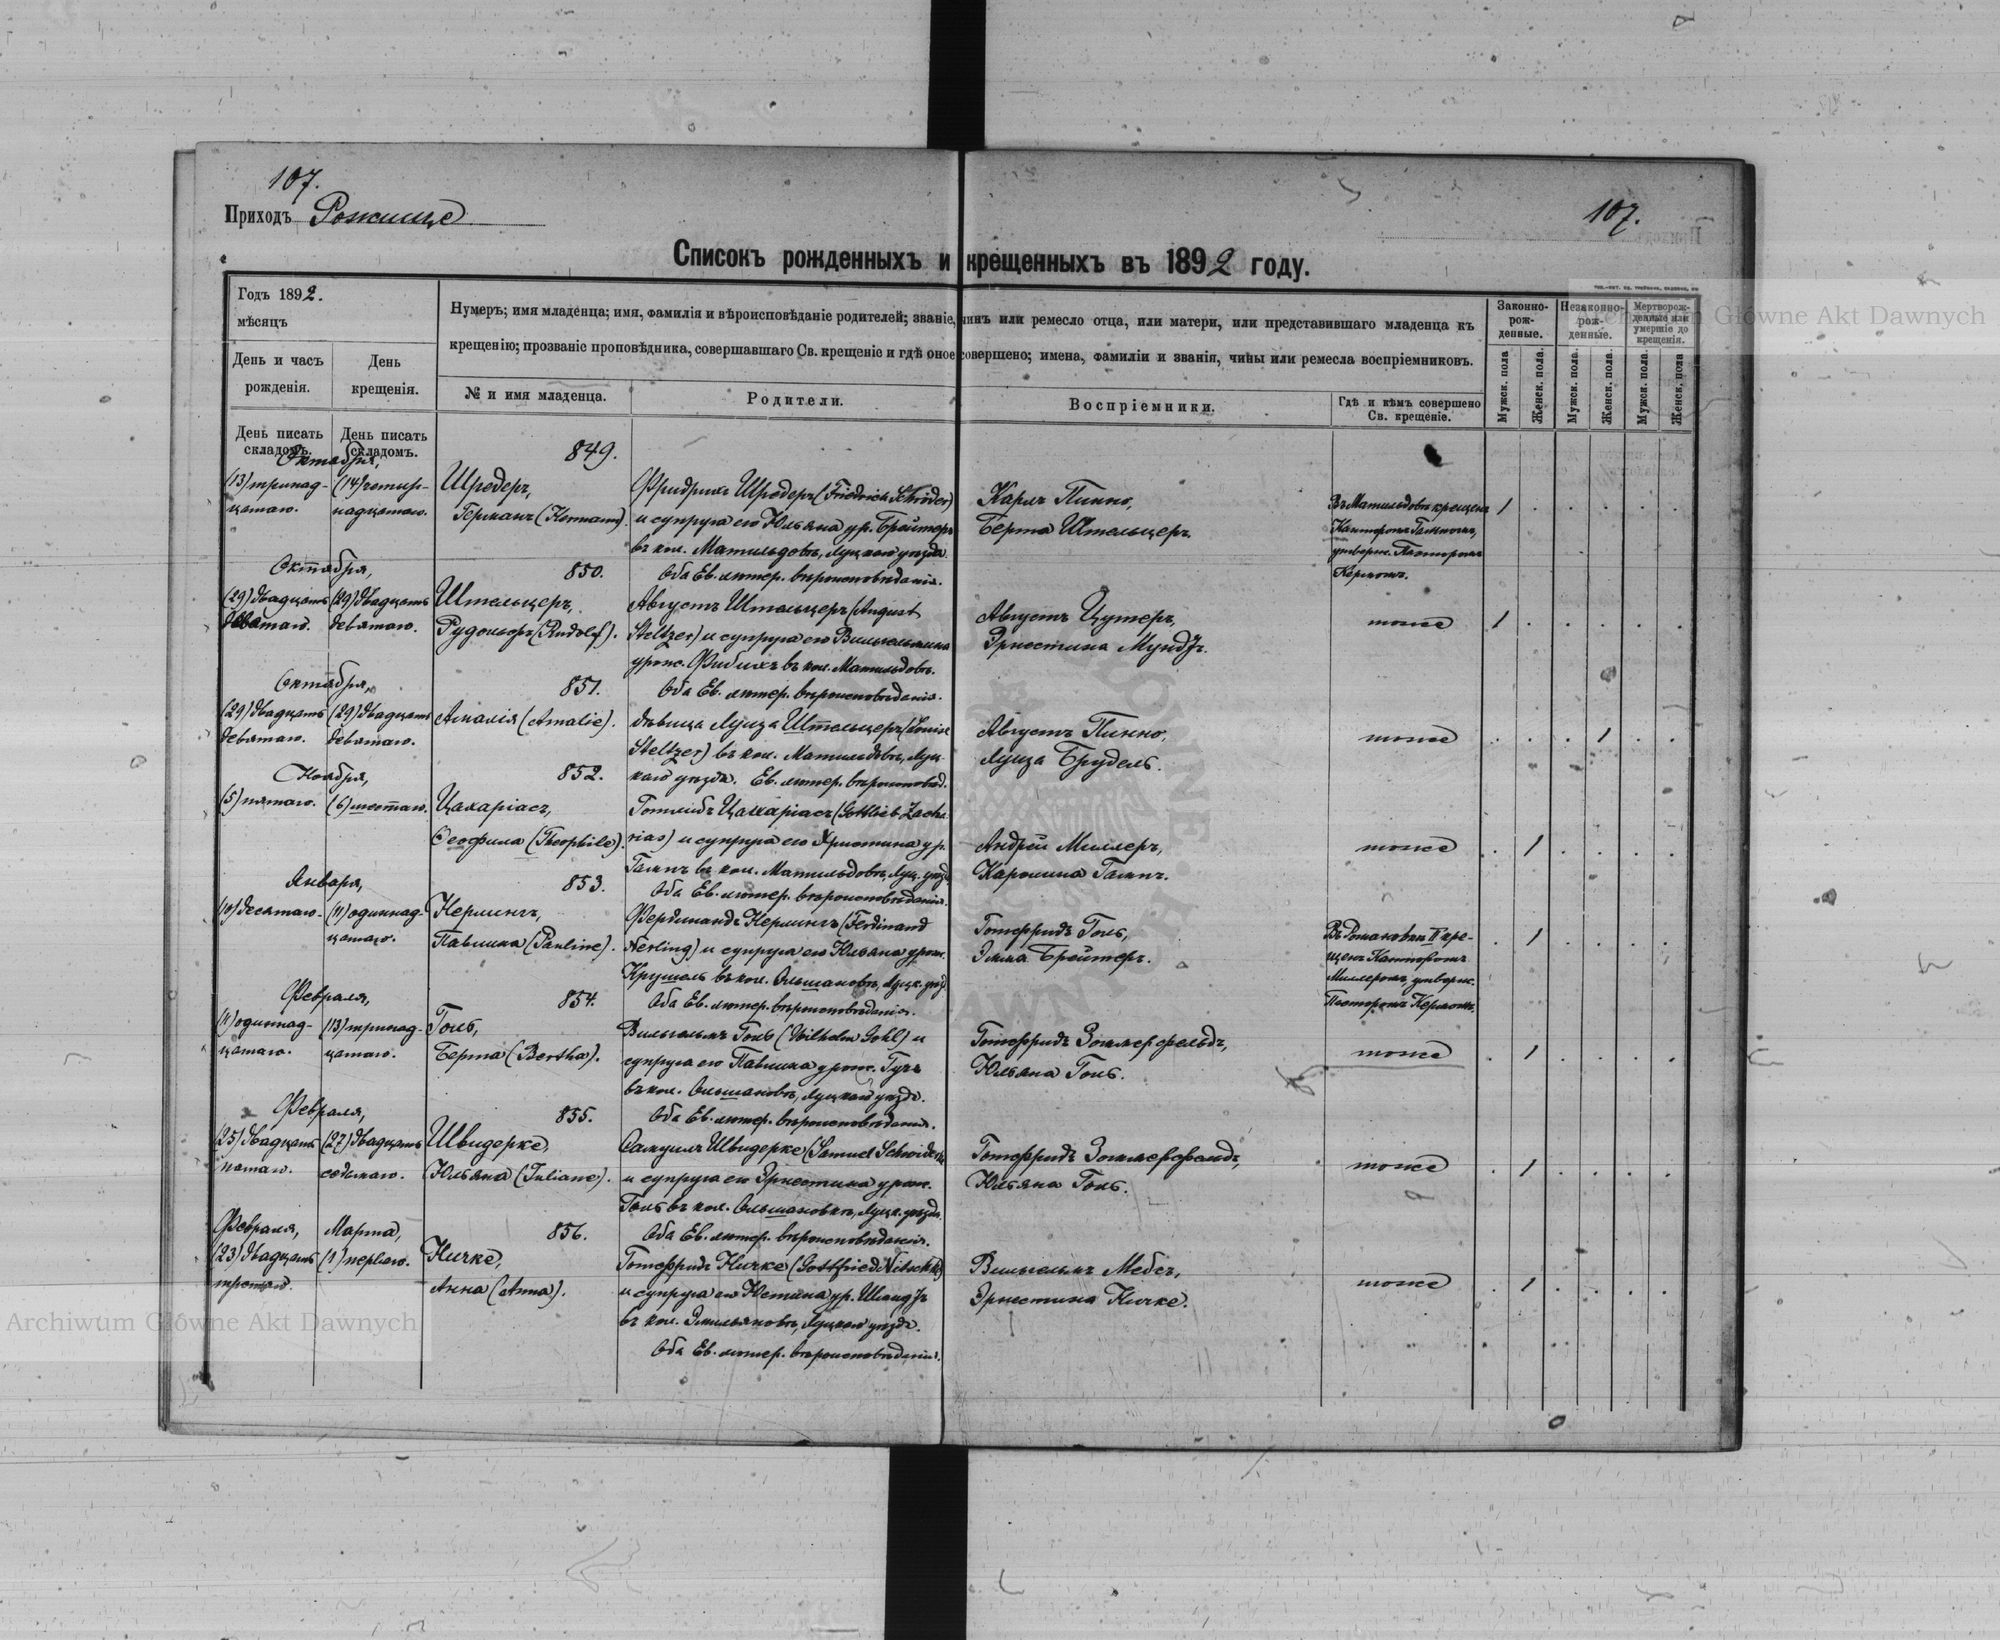 107.
107.
Приходъ Рожище
Списокъ рожденныхъ и крещенныхъ въ 1892 году.
Годъ 1892.
мѣсяцъ
День и часъ рожденія.
День крещенія.
Нумеръ; имя младенца; имя, фамилія и вѣроисповѣданіе родителей; званіе, чинъ или ремесло отца, или матери, или представившаго младенца къ
крещенію; прозваніе проповѣдника, совершавшаго Св. крещеніе и гдѣ оное совершено; имена, фамиліи и званія, чины или ремесла воспріемниковъ.
№ и имя младенца.
Родители.
Воспріемники.
Гдѣ и кѣмъ совершено Св. крещеніе.
Законно-рож-денные.
Незаконно-рож-денные.
Мертворож-денные или умершіе до крещенія.
Мужск. пола
Женск. пола.
Мужск. пола.
Женск. пола.
Мужск. пола.
Женск. пола
День писать складомъ.
День писать складомъ.
Октября,
849.
(13) тринад-
цатаго.
(14) четыр-
надцатаго.
Шредеръ,
Германъ (Hermann).
Фридрихъ Шредеръ (Friedrich Schröder)
и супруга его Юльяна ур. Брейтеръ
въ кол. Матильдовъ, Луцкаго уѣзда.
Оба Ев. лютер. вѣроисповѣданія.
Карлъ Пинно,
Берта Штельцеръ.
Въ Матильдовъ крещенъ
Канторомъ
утвержд. Пасторомъ
Кермомъ.
1
Октября,
850.
(29) двадцать
девятаго.
(29) двадцать
девятаго.
Штельцеръ,
Рудольфъ (Rudolf).
Августъ Штельцеръ (August
Steltzer) и супруга его Вильгельмина
урож. Фибихъ въ кол. Матильдовъ.
Оба Ев. лютер. вѣроисповѣданія.
Августъ Цутеръ,
Эрнестина Мундъ.
тоже
1
Октября,
851.
(29) двадцать
девятаго.
(29) двадцать
девятаго.
Амалія (Amalie).
дѣвица Луиза Штельцеръ (Louise
Steltzer) въ кол. Матильдовъ, Луц-
каго уѣзда. Ев. лютер. вѣроисповѣд.
Августъ Пинно,
Луиза Брудель.
тоже
1
Ноября,
852.
(5) пятаго.
(6) шестаго.
Цахаріасъ,
Теофила (Theophile).
Готлибъ Цахаріасъ (Gottlieb Zacha-
rias) и супруга его Христина ур.
Гампъ въ кол. Матильдовъ, Луц. уѣзд.
Оба Ев. лютер. вѣроисповѣданія.
Андрей Миллеръ,
Каролина Гампъ.
тоже
1
Января,
853.
(10) десятаго.
(11) одиннад-
цатаго.
Нерлингъ,
Павлина (Pauline).
Фердинандъ Нерлингъ (Ferdinand
Nerling) и супруга его Юльяна урож.
Крушель въ кол. Ольшановкѣ, Луцк. уѣзд.
Оба Ев. лютер. вѣроисповѣданія.
Готфридъ Голь,
Эмма Брейтеръ.
Въ Романовкѣ II кре-
щенъ Канторомъ
Миллеромъ, утвержд.
Пасторомъ Кермомъ.
1
Февраля,
854.
(11) одиннад-
цатаго.
(13) тринад-
цатаго.
Голь,
Берта (Bertha).
Вильгельмъ Голь (Wilhelm Gohl) и
супруга его Павлина урож. Гучъ
въ кол. Ольшановкѣ, Луцкаго уѣзда.
Оба Ев. лютер. вѣроисповѣданія.
Готфридъ Зоммерфельдъ,
Юльяна Голь.
тоже
1
Февраля,
855.
(25) двадцать
пятаго.
(27) двадцать
седьмаго.
Швидерке,
Юльяна (Juliane).
Самуилъ Швидерке (Samuel Schwiderke
и супруга его Эрнестина урож.
Голь въ кол. Ольшановкѣ, Луцк. уѣзда.
Оба Ев. лютер. вѣроисповѣданія.
Готфридъ Зоммерфельдъ,
Юльяна Голь.
тоже
1
Февраля,
Марта,
856.
(23) двадцать
третьяго.
(1) перваго.
Ничке,
Анна (Anna).
Готфридъ Ничке (Gottfried Nitschke)
и супруга его Юстина ур. Шмидъ
въ кол. Эмильяновкѣ, Луцкаго уѣзда.
Оба Ев. лютер. вѣроисповѣданія.
Вильгельмъ Мебсъ,
Эрнестина Ничке.
тоже
1
Archiwum Główne Akt Dawnych
Archiwum Główne Akt Dawnych